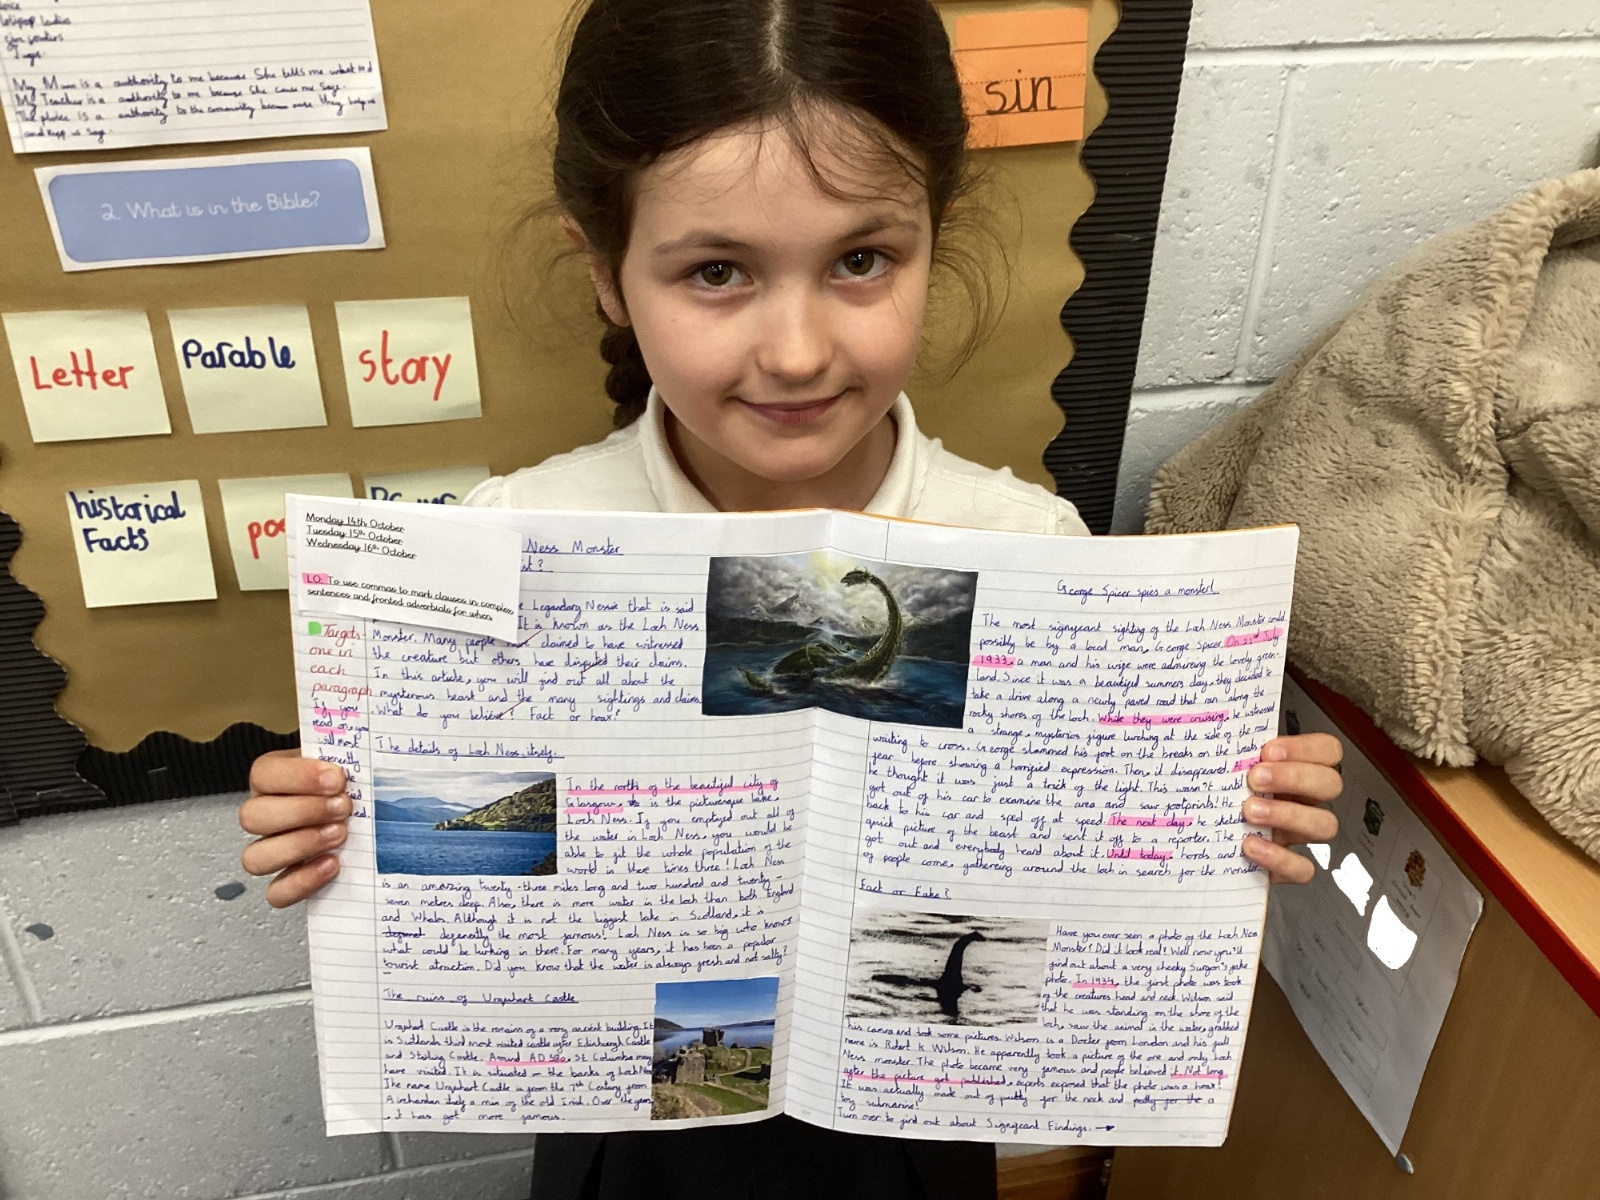 lollipop ladies
My Mum is a authority to me because She tells me what to d
My Teacher is a authority to me because She
The police is a authority to the community because they help us
and
2. What is in the Bible?
sin
Letter
Parable
story
historical
Facts
Monday 14th October
Tuesday 15th October
Wednesday 16th October
LO: To use commas to mark clauses in complex
sentences and fronted adverbials for when.
Targets
one in
each
paragraph
If you
read on, you
will most
Ness Monster
ist?
Legendary Nessie that is said
It is known as the Loch Ness
Monster. Many people have claimed to have witnessed
the creature but others have disputed their claims.
In this article, you will find out all about the
mysterous beast and the many sightings and claims
. What do you believe? Fact or hoax?
The details of Loch Ness, itself.
In the north of the beautiful city of
Glasgow, is the picturesque lake,
Loch Ness. If you emptyed out all of
the water in Loch Ness, you would be
able to fit the whole population of the
world in there times three! Loch Ness
is an amazing twenty-three miles long and two hundred and twenty-
seven metres deep. Also, there is more water in the loch than both England
and Whales. Although it is not the biggest lake in Scotland, it is
degenetly the most famous! Loch Ness is so big who knows
what could be lurking in there. For many years, it has been a popular
tourist atraction. Did you know that the water is always fresh and not salty?
The ruins of Urquhart Castle
Urquhart Castle is the remains of a very ancient building. It
is Scotlands third most visited castle after Edinburgh Castle
and Stirling Castle. Around AD 580, St Columba may
have visited. It is situated on the banks of Loch Ness
The name Urquhart Castle is from the 7th Century from
a mix of the old Irish. Over the years
, it has got more famous.
George Spicer spies a monster!
The most signifycant sighting of the Loch Ness Monster could
possibly be by a local man, George Spicer. On 22nd July
1933, a man and his wife were admireing the lovely green-
land. Since it was a beautiful summers day, they decided to
take a drive along a newly paved road that ran along the
rocky shores of the loch. While they were cruising, he witnessed
a strange, mysterios figure lurching at the side of the road
waiting to cross. George slammed his foot on the breaks on the breaks in
fear before showing a horrified expression. Then, it disappeared.
he thought it was just a trick of the light. This wasn't until
got out of his car to examine the area and saw footprints! He
back to his car and sped off at speed. The next day, he sketch
quick picture of the beast and sent it off to a reporter. The
got out and everybody heard about it. Until today, hords and
of people come, gathereing around the loch in search for the monster
Fact or Fake?
Have you ever seen a photo of the Loch Ness
Monster? Did it look real? Well now you'll
find out about a very cheeky Surgon's fake
photo. In 1934, the first photo was took
of the creatures head and neck. Wilson said
that he was standing on the shore of the
loch, saw the animal in the water, grabbed
his camra and took some pictures. Wilson is a Docter from London and his full
name is Robert K Wilson. He apparently took a picture of the one and only Loch
Ness monster. The photo became very famous and people believed it. Not long
after the picture got published, experts exposed that the photo was a hoax!
It was actually made out of putty for the neck and putty for the a
toy submarine!
Turn over to find out about Signifycant Findings.